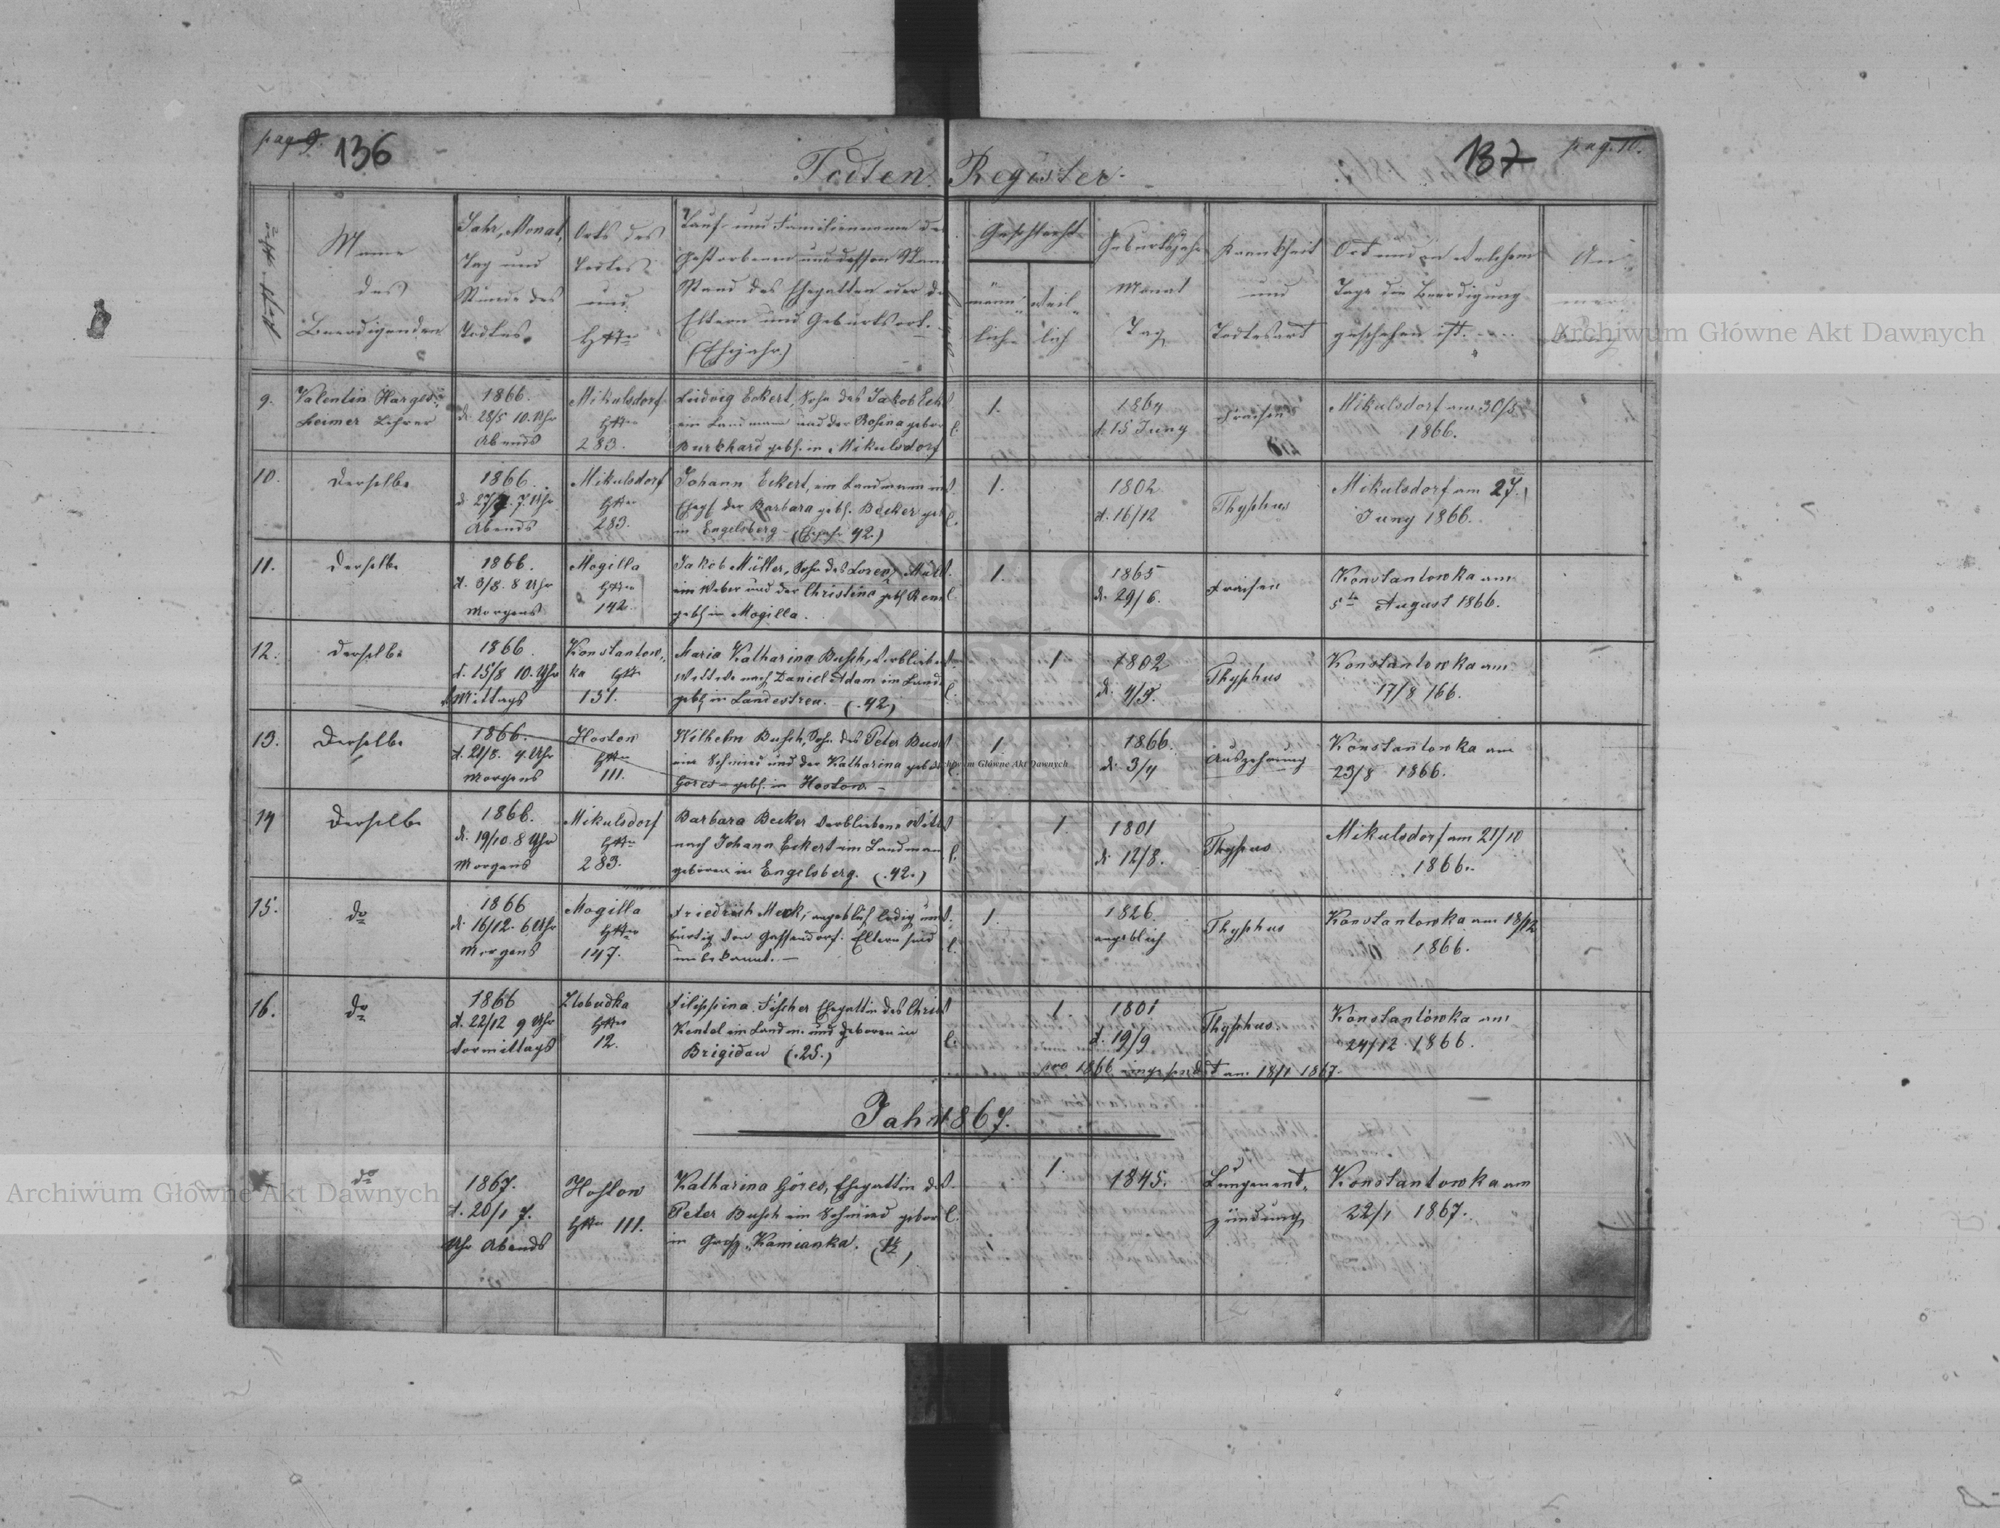 pag. 9. 136
137 pag. 10.
Todten Register.
Name
des
Beerdigenden
Jahr, Monat,
Tag und
Stunde des
Todtes.
Orts des
Todtes
und
Tauf- und Familienname des
Gestorbenen und dessen
Stand des Ehegatten oder der
Eltern und Geburtsort.
(Ehejahr)
Geschlecht
männ-
lich
weib-
lich
Geburtsjahr
Monat
Tag
Krankheit
und
Todtesart
Ort und an welchem
Tage die Beerdigung
geschehen ist.
An-
mer-
9.
Valentin Harges-
heimer Lehrer
1866.
d. 28/5 10. Uhr
Abends
Mikulsdorf
283.
Ludwig Eckert, Sohn des Jakob Eck
ein Landmann und der Rosina gebor
Burkhard geb. in Mikulsdorf
1.
1864
d. 15 Juny
Fraisen
Mikulsdorf am 30/5
1866.
10.
Derselbe
1866.
7. Uhr
Abends
Mikulsdorf
283.
Johann Eckert, ein Landmann
Ehegt. der Barbara geb. Becker geb
in Engelsberg (Ehejahr 42.)
1.
1802
d. 16/12
Thyphus
Mikulsdorf am 27.
Juny 1866.
11.
Derselbe
1866.
d. 3/8. 8 Uhr
Morgens
Mogilla
142.
Jakob Müller, Sohn des Lorenz Müll
ein Weber und der Christina geb.
geb. in Mogilla.
1.
1865
d. 29/6.
Fraisen
Konstantowka am
5ten August 1866.
12.
Derselbe
1866.
d. 15/8 10. Uhr
Mittags
Konstantow-
ka
131.
Maria Katharina Busch, verbliebe
Wittwe nach Daniel Adam ein Land.
geb. in Landestreu. (.42)
1
1802
d. 4/9.
Thyphus
Konstantowka am
17/8 166.
13.
Derselbe
1866.
d. 21/8. 4. Uhr
Morgens
Hostow
111.
Wilhelm Busch, Sohn des Peter Busch
ein Schmied und der Katharina geb
Göres geb. in Hostow.
1.
1866.
d. 3/4
Auszehrung
Konstantowka am
23/8 1866.
14
Derselbe
1866.
d. 19/10 8 Uhr
Morgens
Mikulsdorf
283.
Barbara Becker verbliebene Witt
nach Johann Eckert ein Landman
geboren in Engelsberg. (.42.)
1.
1801
d. 12/8.
Thyphus
Mikulsdorf am 21/10
1866.
15.
do
1866
d. 16/12. 6 Uhr
Morgens
Mogilla
147.
Friedrich Mock, angeblich ledig und
bürtig von Gassendorf. Eltern sind
unbekannt.
1.
1826.
angeblich
Thyphus
Konstantowka am 18/12
1866.
16.
do
1866
d. 22/12 9 Uhr
Vormittags
Zlobudka
12.
Filippina Fischer Ehegattin des Chris
Kentel ein Landm. und geboren in
Brigidau (.25.)
1.
1801
d. 19/9
Thyphus
Konstantowka am
24/12 1866.
pro 1866 eingesendet am 18/1 1867.
Jahr 1867.
do
1867.
d. 20/1 7.
Uhr Abends
Hostow
111.
Katharina Göres, Ehegattin d
Peter Busch ein Schmied gebor
in Kamianka.
1.
1845.
Lungenent-
zündung
Konstantowka am
22/1 1867.
Archiwum Główne Akt Dawnych
Archiwum Główne Akt Dawnych
Archiwum Główne Akt Dawnych